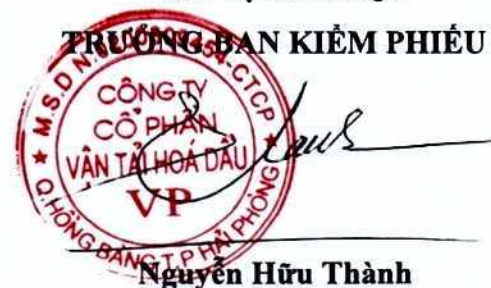 TRƯỞNG BAN KIỂM PHIẾU
CÔNG TY
CỔ PHẦN
VẬN TẢI HOÁ DẦU
VP
Q. HỒNG BÀNG T.P HẢI PHÒNG
Nguyễn Hữu Thành